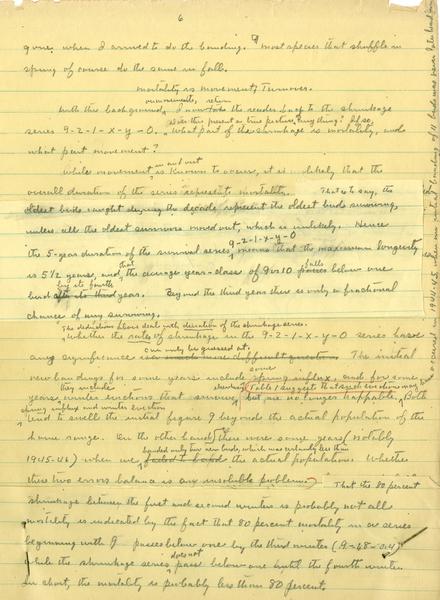 6
gone, when I arrived to do the banding. If most species that shuffle in
spring of course do the same in fall.
mortality is movement; Turnover.
announcements, return
With this background, I now take the reader back to the shrinkage
Does this present a true picture, if anything? If so,
series 9-2-1-x-y-0. What part of the shrinkage is mortality, and
what part movement?
in and out
While movement is known to occur, it is likely that the
overall duration of the series represents mortality. That is to say, the
oldest birds caught during the decade represent the oldest birds surviving,
unless all the oldest survivors moved out, which is unlikely. Hence
9-2-1-x-y-0
the 5-year duration of the survival series means that the maximum longevity
that falls
is 5 1/2 years, and the average year-class of 9 or 10 passes below one
by its fourth
bird after its third year. Beyond the third year there is only a fractional
chance of any surviving.
The deductions above deal with duration of the shrinkage series.
Whether the rates of shrinkage in the 9-2-1-x-y-0 series have
can only be guessed at.
any significance is a much more difficult question. The initial
some
new bandings for some years include spring influx, and for some
they include Table 1 suggest that such evictions may
years winter evictions that but are no longer trappable. Both
spring influx and winter eviction
tend to swell the initial figure 9 beyond the actual population of the
home range. On the other hand, there were some years (notably
banded only two new birds, which was certainly less than
1945-46) when we failed to band the actual population. Whether
these two errors balance is an insoluble problem. That the 80 percent
shrinkage between the first and second winters is probably not all
mortality is indicated by the fact that 80 percent mortality in a series
beginning with 9 passes below one by the third winter (9-1.8-0.4)
does not
while the shrinkage series pass below one until the fourth winter.
In short, the mortality is probably less than 80 percent.